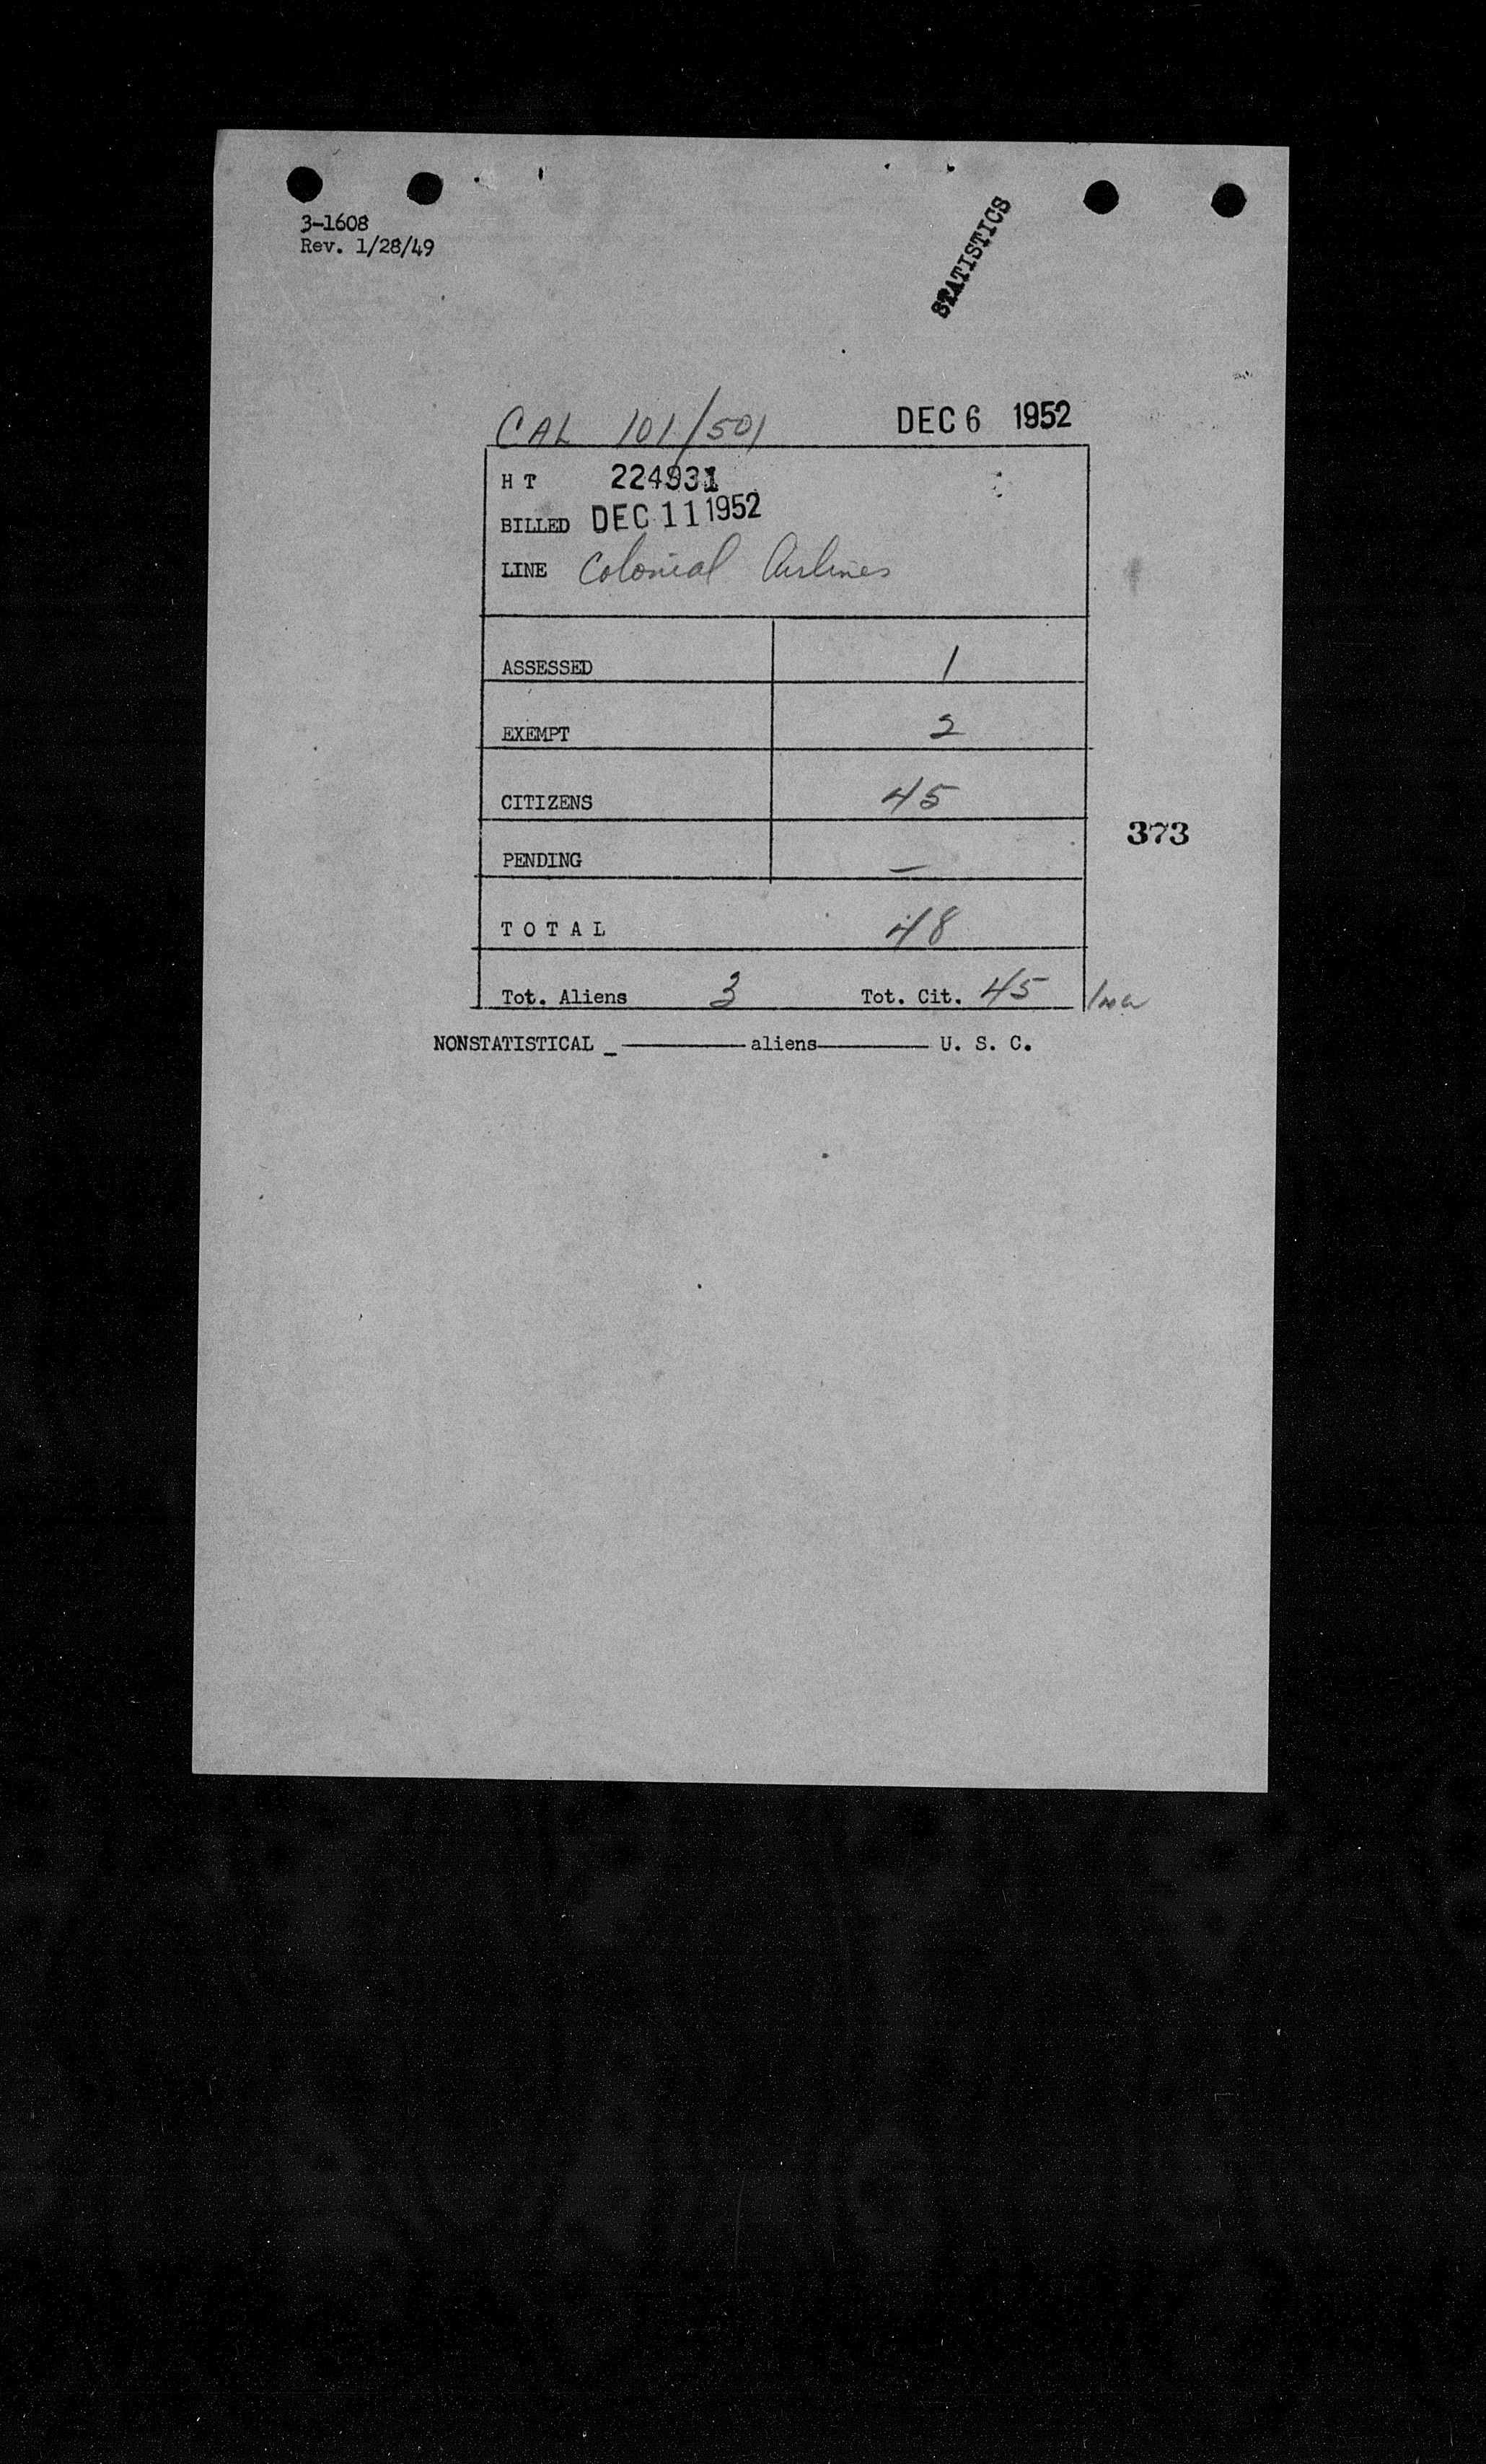 3-1608
Rev. 1/28/49
STATISTICS
CAL 101/501 DEC 6 1952
H T 224931
BILLED DEC 11 1952
LINE Colonial Airlines
ASSESSED 1
EXEMPT 2
CITIZENS 45
373
PENDING —
T O T A L 48
Tot. Aliens 3 Tot. Cit. 45
NONSTATISTICAL _ ———— aliens ———— U. S. C.